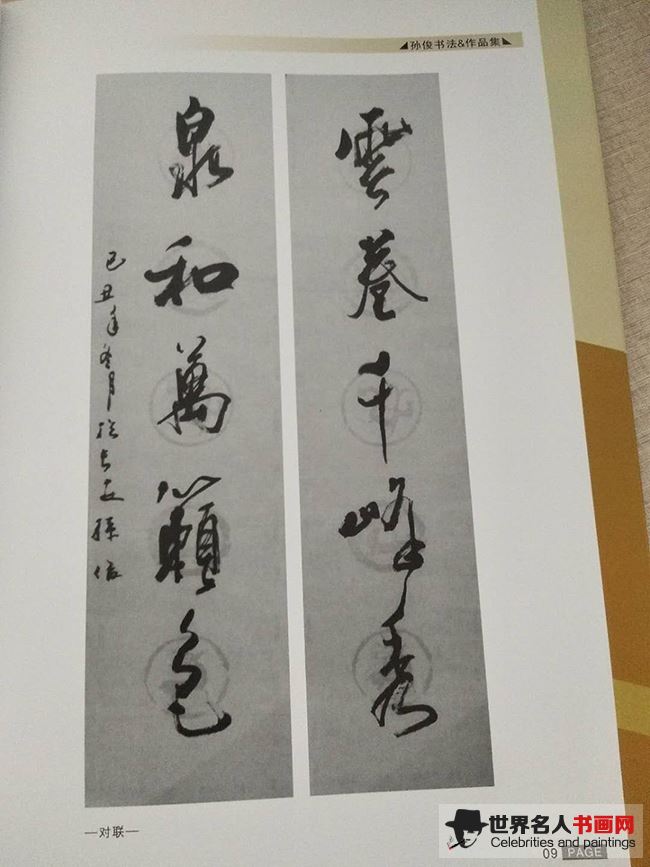 孙俊书法&作品集
雲卷千峰秀
泉和萬籟色
己丑年冬月於长安孫俊
—对联—
世界名人书画网
Celebrities and paintings
09 PAGE